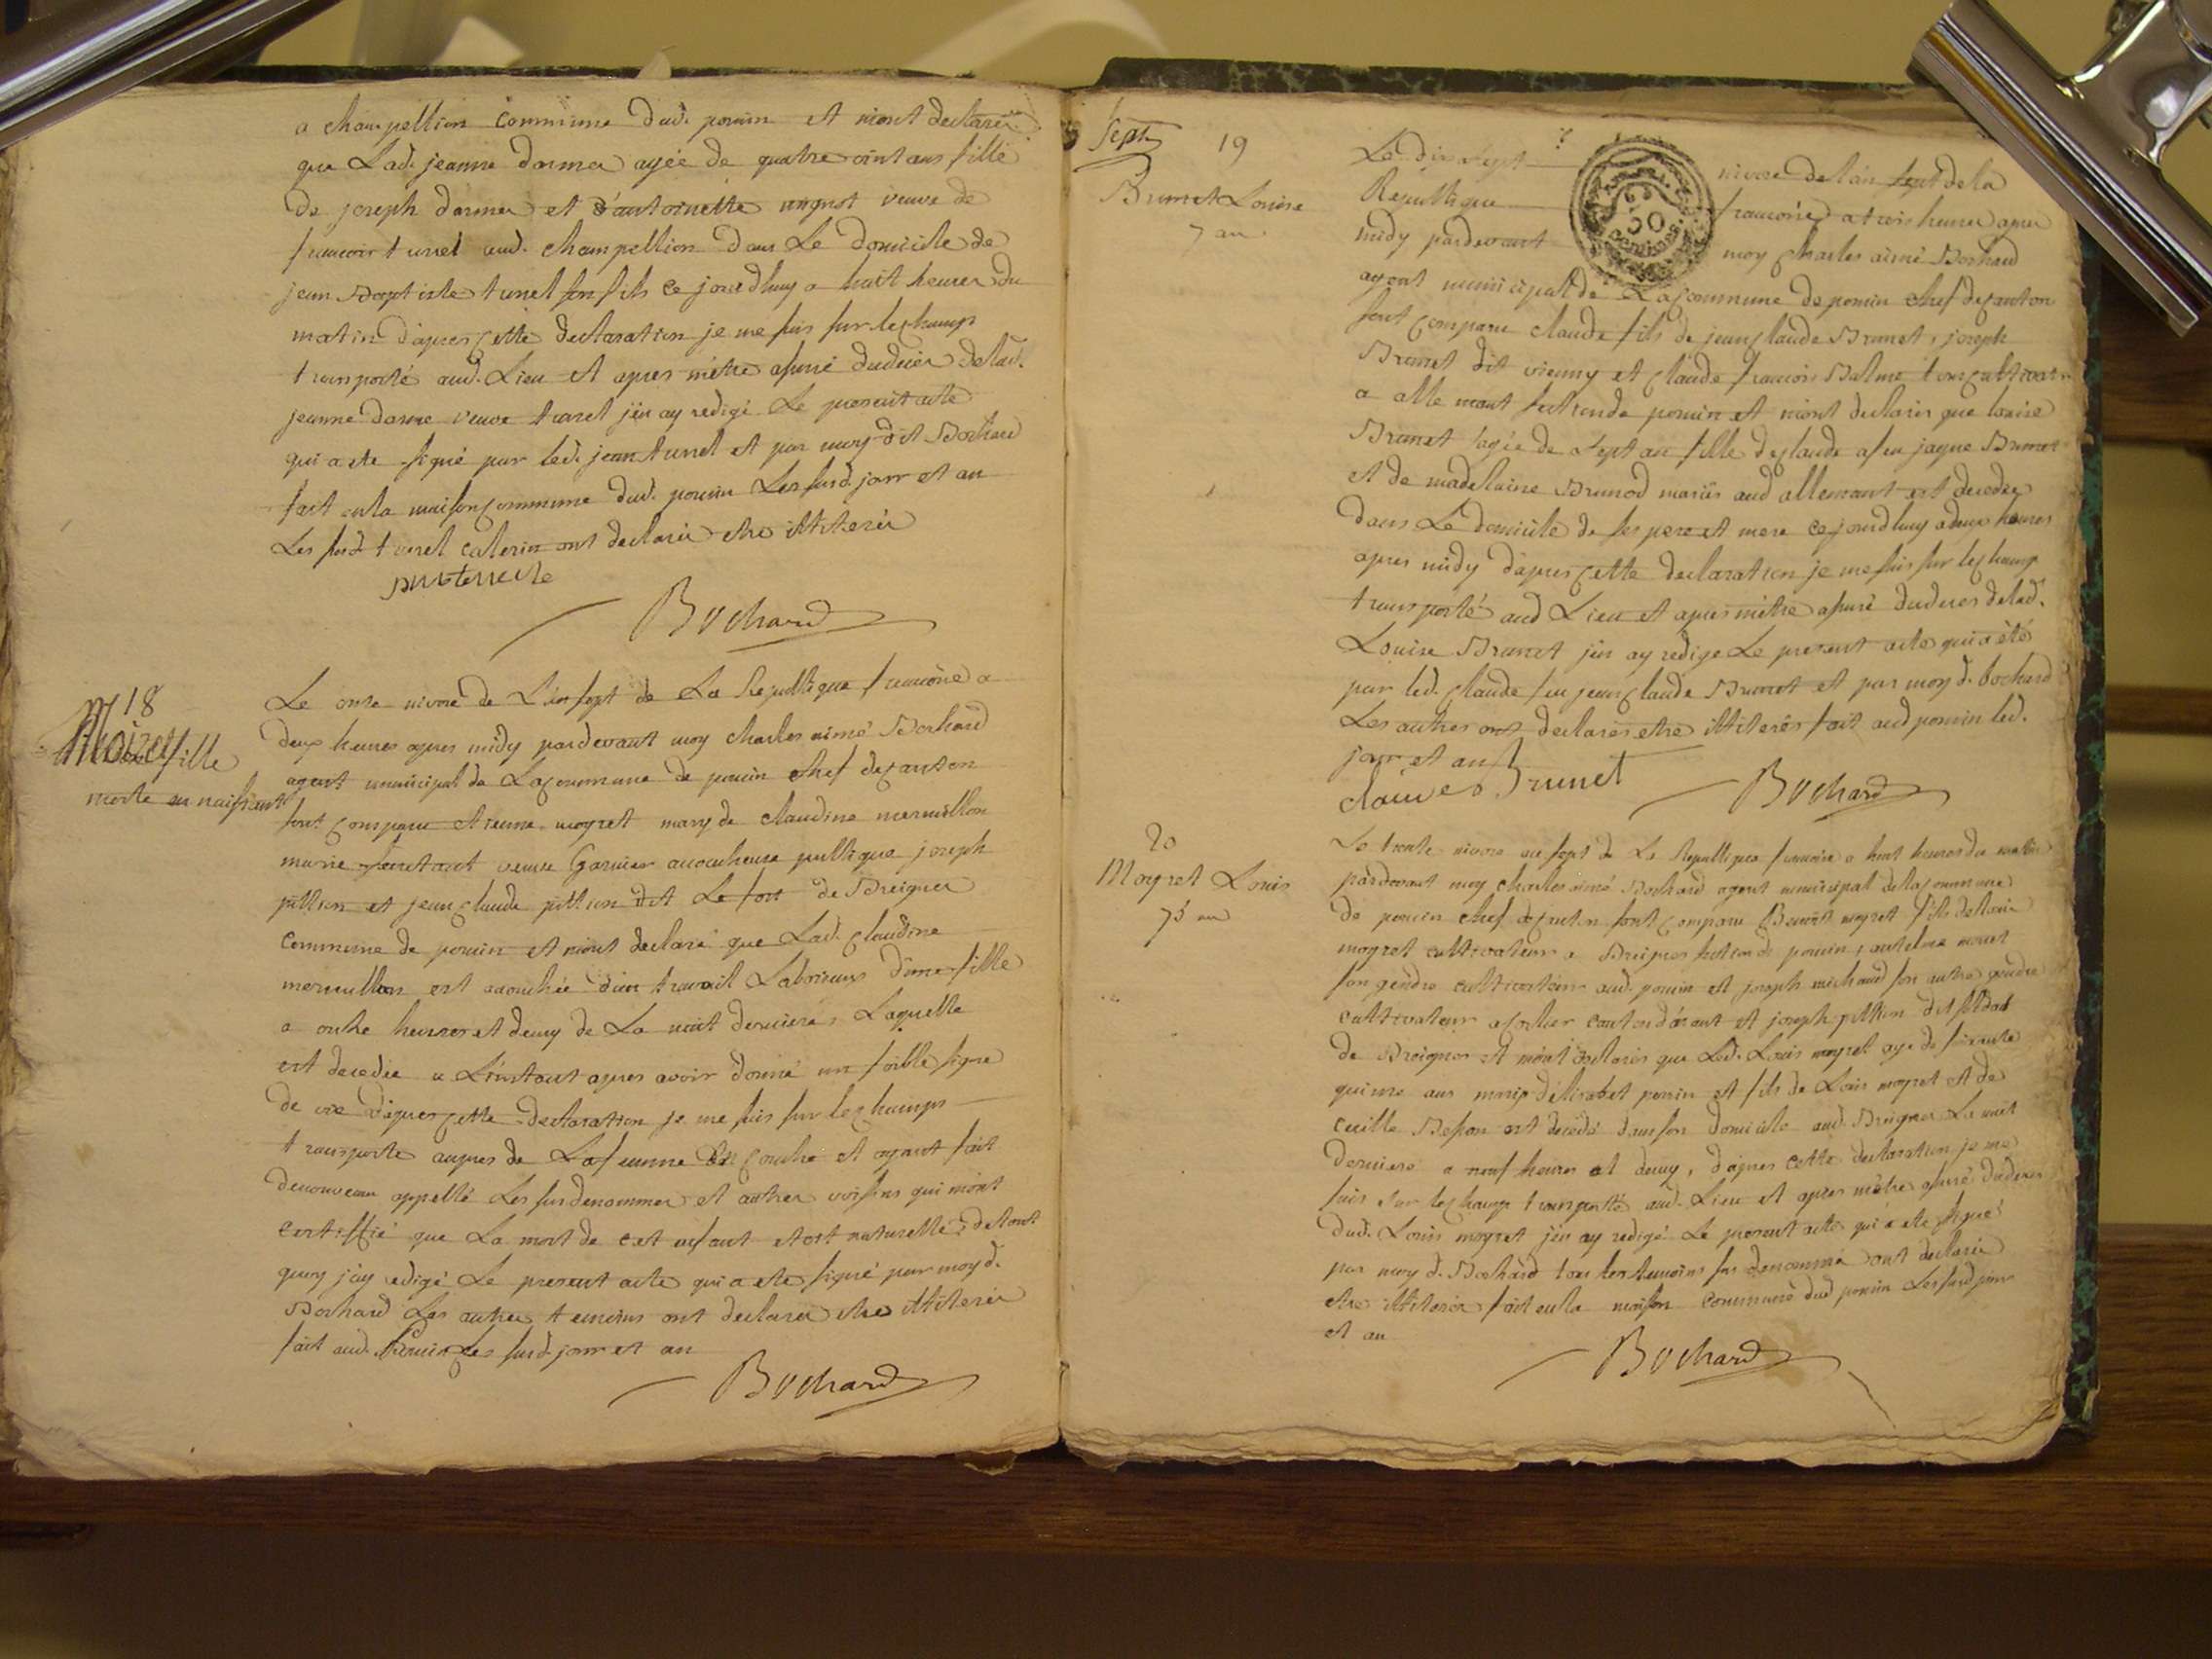 a champellion commune dud. poncin et m'ont declarés
que Lad. jeanne darmer agée de quatre vint ans fille
de joseph darmer et d'antoinette veuve de
francois tunel aud. champellion dans Le domicile de
jean Baptiste tunel son fils ce jourdhuy a huit heures du
matin d'apres cette declaration je me suis sur lechamps
transporté aud. Lieu et apres m'etre asuré dudeces delad.
jeanne darme veuve tunel j'en ay redigé Le present acte
qui a ete signé par led. jean tunel et par moy dit Bochard
fait enla maison commune dud. poncin Les susd. jour et an
Les susd. tunel ont declarés etre illiterés
Bochard
18
Moiret fille
morte en naissant
Le onse nivose de L'an sept de La Republique francoise a
deux heures apres midy pardevant moy charles aimé Bochard
agent municipal de La commune de poncin chef de canton
sont comparu etienne moyret mary de claudine mermillon
marie veuve Garnier acoucheuse publique joseph
pittion et jean claude pittion dit Le fort de Breignes
commune de poncin et m'ont declaré que Lad. claudine
mermillon est acouchée d'un travail Laborieux d'une fille
a onse heures et demy de La nuit derniere, Laquelle
est decedée a L'instant apres avoir donné un foible signe
de vie d'apres cette declaration je me suis sur lechamps
transporté aupres de La femme en couche et ayant fait
denouveau appellé Les susdenommes et autres voisins qui m'ont
certiffié que La mort de cet enfant etoit naturelle, detout
quoy j'ay redigé Le present acte qui a ete signé par moy d.
Bochard Les autres temoins ont declarés etre illiterés
fait aud. Poncin Les susd. jour et an
Bochard
Sept
19
Brunet Louise
7 an
Le dix sept nivose de l'an sept de la
Republique francoise a trois heures apres
midy pardevant moy charles aimé Bochard
50
centimes
agent municipal de La commune de poncin chef de canton
sont comparu claude fils de jean claude Brunet, joseph
Brunet dit vienny et claude francois Balme tous cultivateurs
a allemont de poncin et m'ont declarés que louise
Brunet agée de sept an fille de claude a feu jaque Brunet
et de madelaine Brunod mariés aud allemant est decedée
dans Le domicile de ses pere et mere ce jourdhuy a deux heures
apres midy d'apres cette declaration je me suis sur lechamp
transporté aud Lieu et apres m'etre asuré dudeces delad.
Louise Brunet j'en ay redigé Le present acte qui a été
par led. claude feu jean claude Brunet et par moy d. bochard
Les autres ont declarés etre illiterés fait aud poncin led.
jour et an
claude Brunet
Bochard
20
Moyret Louis
75 an
Le trente nivose an sept de La Republique francoise a huit heures du matin
pardevant moy charles aimé Bochard agent municipal de la commune
de poncin chef de canton sont comparu Benoit moyret fils de Louis
moyret cultivateur a Breignes de poncin, antelme
son gendre cultivateur aud. poncin et joseph michaud son autre gendre
cultivateur a canton et joseph pittion dit
de Breignes et m'ont declarés que Led. Louis moyret agé de soixante
quinse ans mary d'elisabet poncin et fils de Louis moyret et de
cecille Besson est decedé dans son domicile aud. Breignes La nuit
derniere a neuf heures et demy, d'apres cette declaration je me
suis sur lechamp transporté aud. Lieu et apres m'etre asuré dudeces
dud. Louis moyret j'en ay redigé Le present acte qui a ete signé
par moy d. Bochard tous les temoins sus denommé ont declarés
etre illiterés fait enla maison commune dud poncin Les susd jour
et an
Bochard